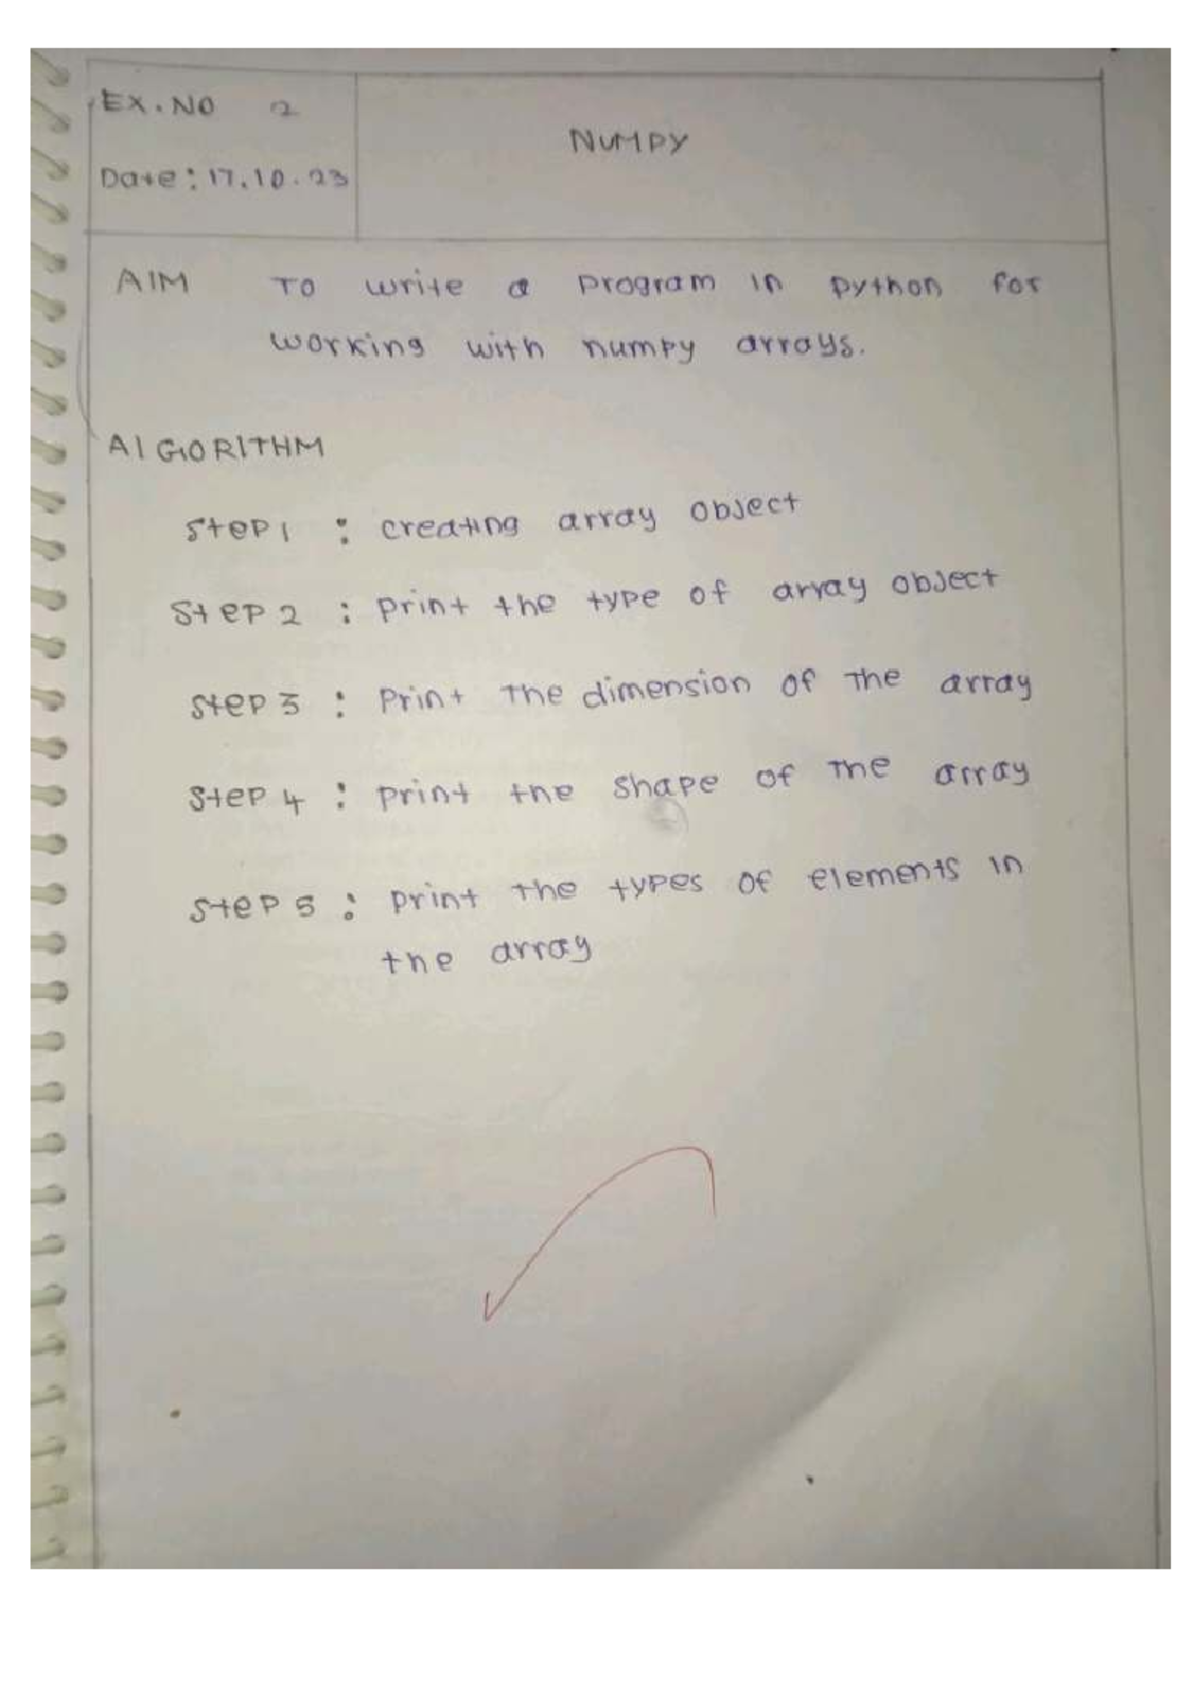 EX.NO 2
NUMPY
Date: 17.10.23
AIM To write a program in python for
working with numpy arrays.
ALGORITHM
Step 1 : creating array object
Step 2 : print the type of array object
Step 3 : Print the dimension of the array
Step 4 : print the shape of the array
Step 5 : print the types of elements in
the array